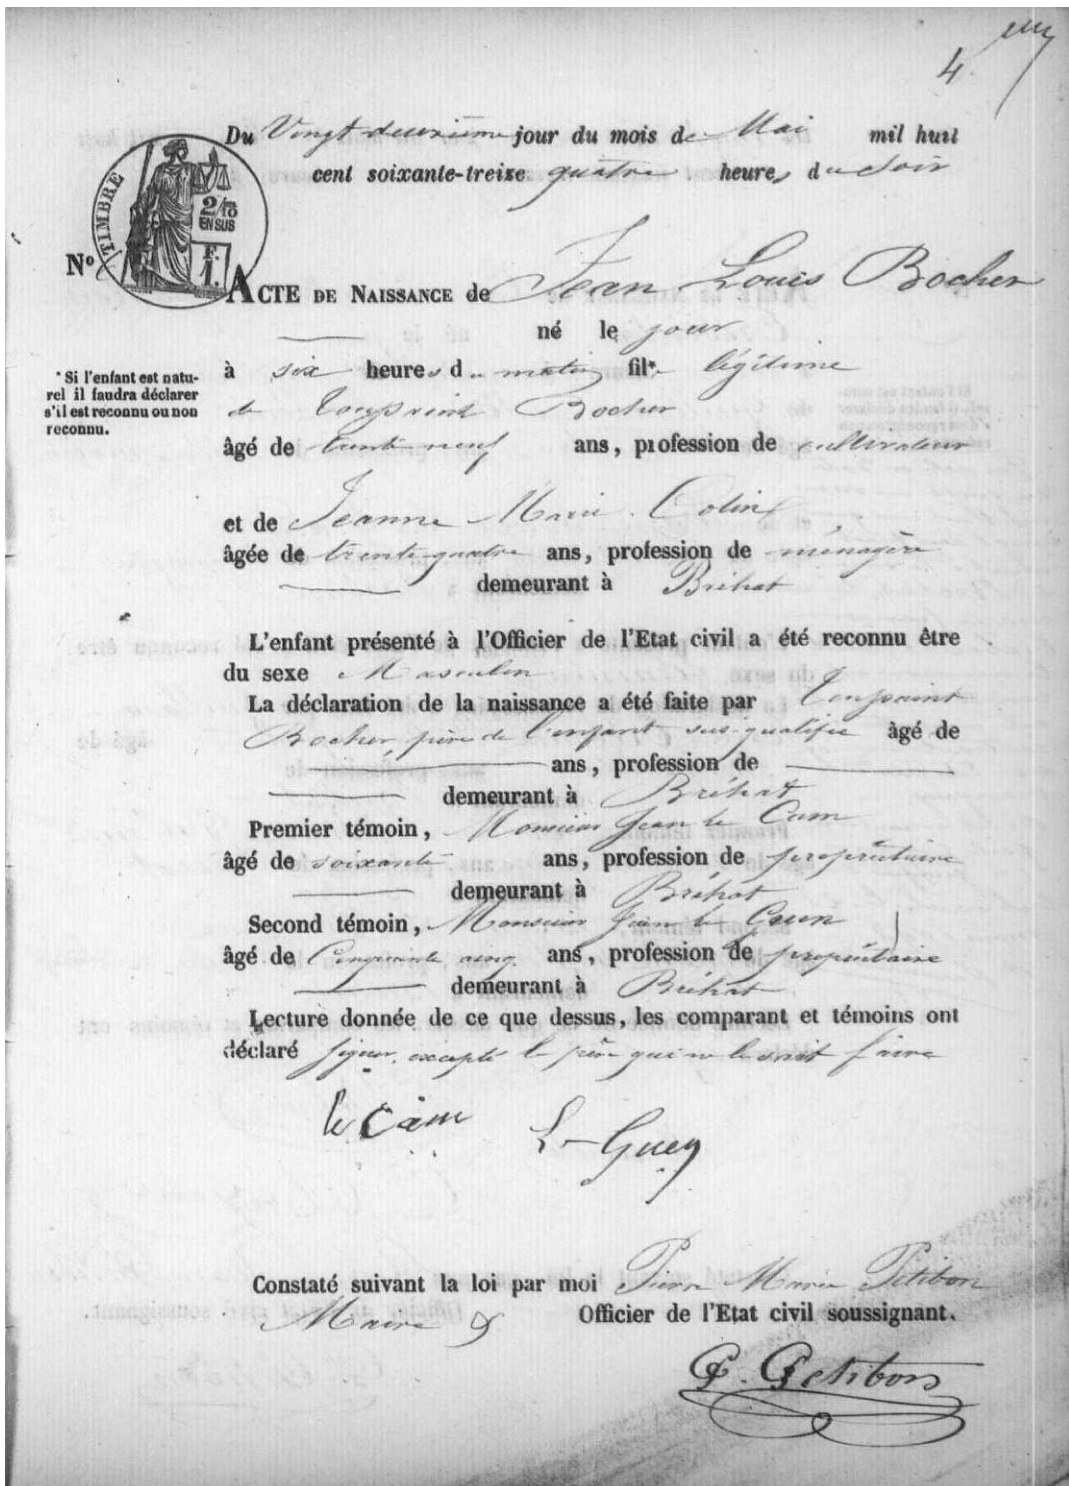 4
Du Vingt deuxième jour du mois de Mai mil huit
cent soixante-treize quatre heures du soir
TIMBRE
2/10
EN SUS
F.
1.
N°
ACTE DE NAISSANCE de Jean Louis Bocher
né le jour
à six heures du matin fils* légitime
* Si l'enfant est natu-
rel il faudra déclarer
s'il est reconnu ou non
reconnu.
de Toussaint Bocher
âgé de trente neuf ans, profession de cultivateur
et de Jeanne Marie Colin
âgée de trente quatre ans, profession de ménagère
demeurant à Bréhat
L'enfant présenté à l'Officier de l'Etat civil a été reconnu être
du sexe Masculin
La déclaration de la naissance a été faite par Toussaint
Bocher, père de l'enfant sus-qualifié âgé de
ans, profession de
demeurant à Bréhat
Premier témoin, Monsieur Jean le Cam
âgé de soixante ans, profession de propriétaire
demeurant à Bréhat
Second témoin, Monsieur Jean le
âgé de Cinquante cinq ans, profession de propriétaire
demeurant à Bréhat
Lecture donnée de ce que dessus, les comparant et témoins ont
déclaré signer, excepté le père qui ne le sait faire
le Cam
Constaté suivant la loi par moi Pierre Marie Petibon
Maire Officier de l'Etat civil soussignant.
P. Petibon